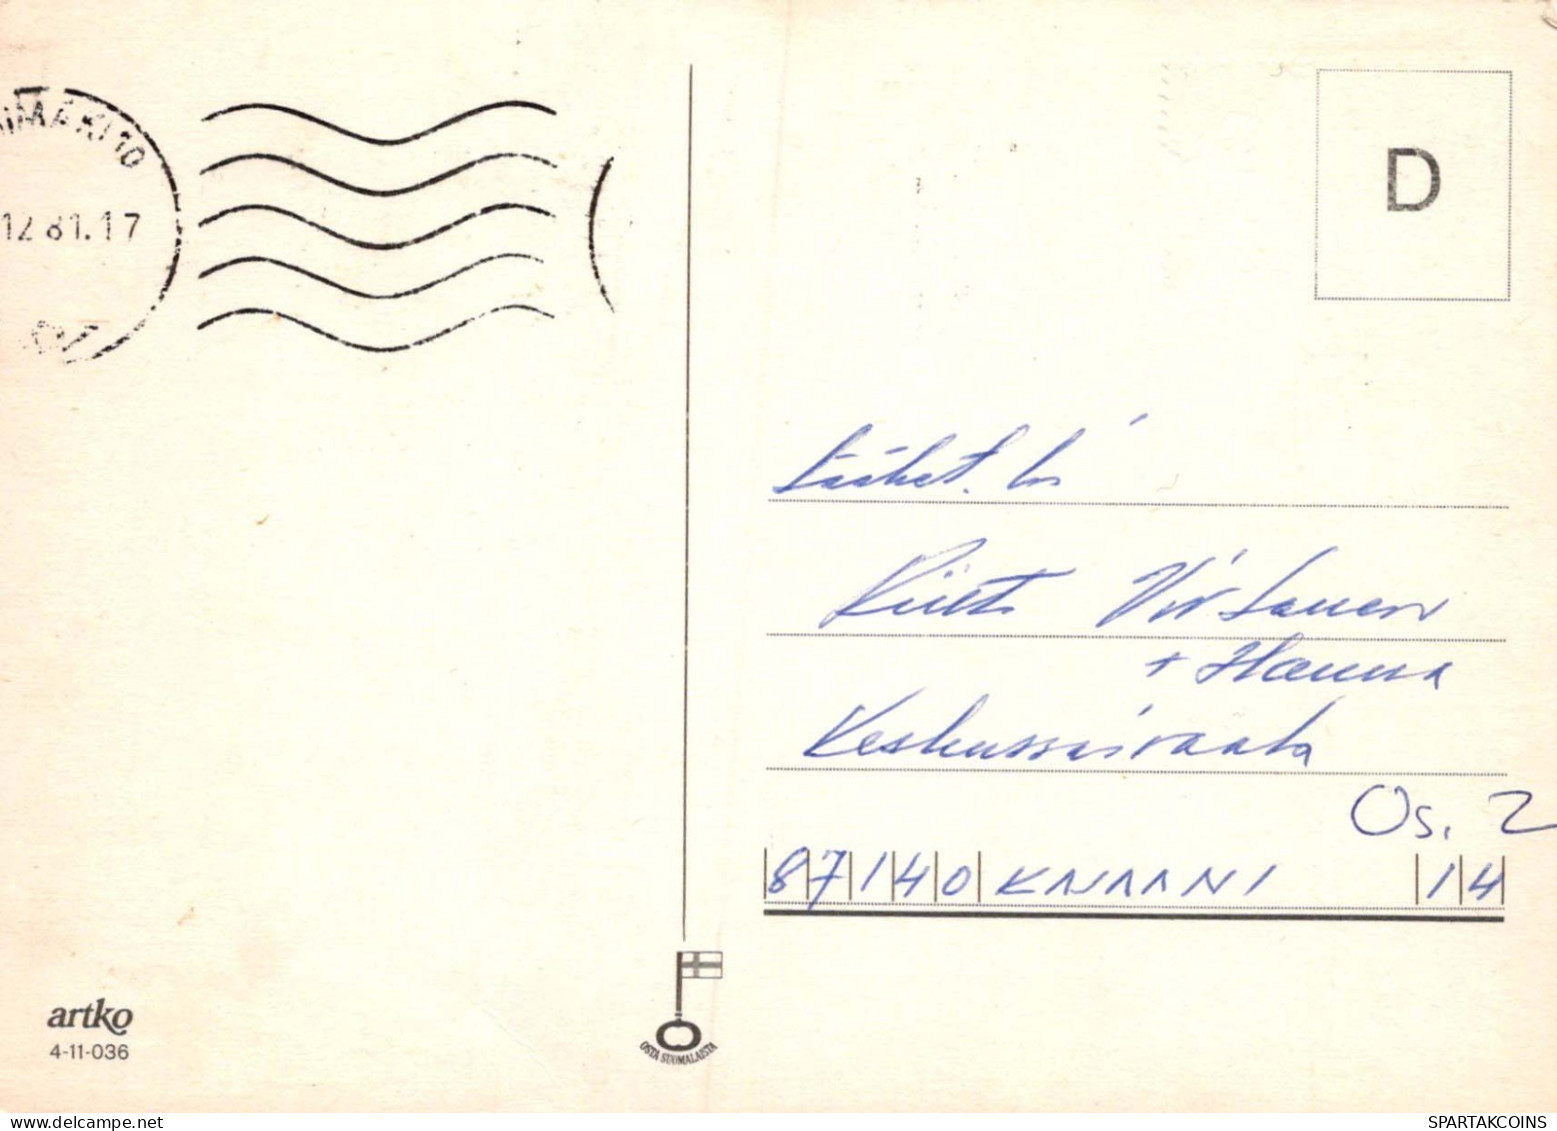 IMÄKI 10
12 81.17
D
Lääket. lis
Virtanen
+ Hanna
Keskussairaala
Os. 2
87140 KAJAANI 14
artko
4-11-036
OSTA SUOMALAISTA
www.delcampe.net
SPARTAKCOINS